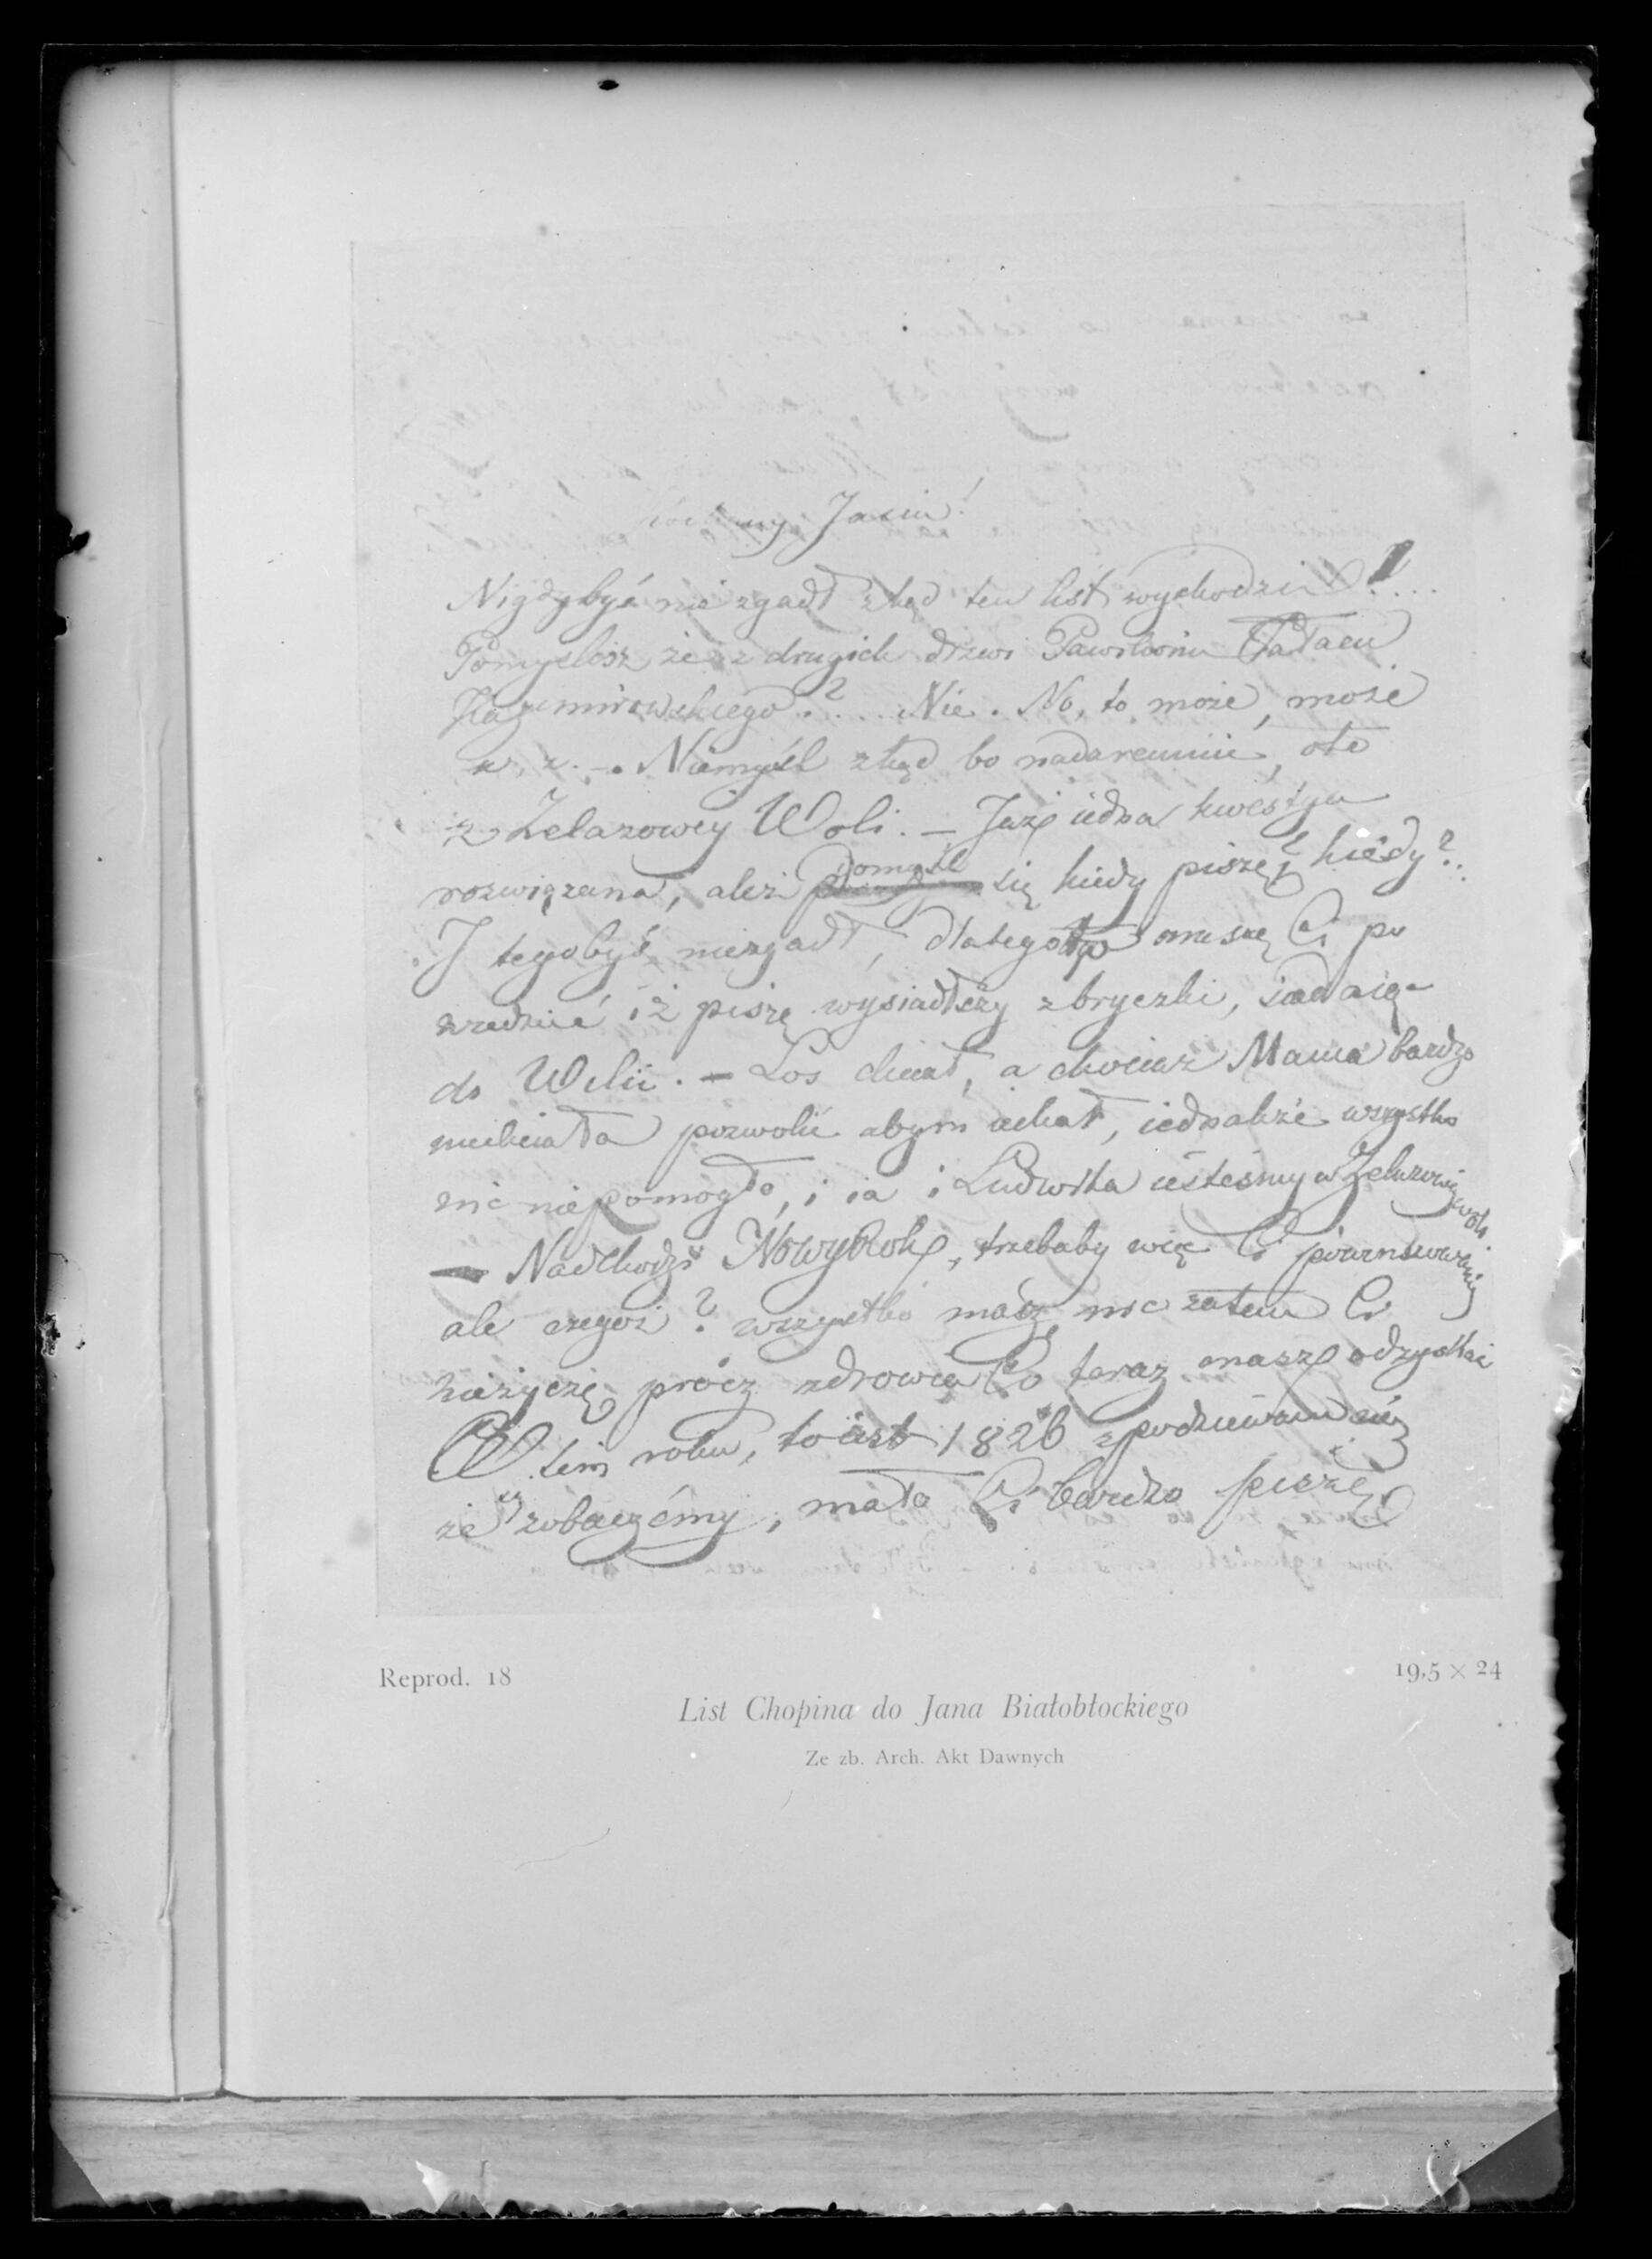 Jasiu!
Nigdybyś nie zgadł zkąd ten list wychodzi!!....
Pomyślisz że z drugich drzwi Pawilonu Pałacu
Kazimirowskiego?.... Nie. No, to może, może
z. z. –. Niemyśl zkąd bo nadaremnie, oto
z Żelazowey Woli. – Już iedna kwestya
rozwiązana, aleź domyśl się kiedy piszę? kiedy?..
I tegobyś niezgadł, dlategoto muszę Ci po
wiedzieć iż piszę wysiadłszy z bryczki, siadaiąc
do Wilii. – Los chciał, a chociaż Mama bardzo
niechciała pozwolić abym iechał, iednakże wszystko
nic niepomogło, i ia i Ludwika iesteśmy w Żelazowey Woli.
– Nadchodzi Nowy Rok, trzebaby więc Ci powinszowania
ale czegoż? wszystko masz, nic zatem Ci
nieżyczę prócz zdrowia Co teraz masz odzyskać
W tem roku, to iest 1826 spodziewam się
że się zobaczémy, mało Ci bardzo piszę
Reprod. 18
19,5 × 24
List Chopina do Jana Białobłockiego
Ze zb. Arch. Akt Dawnych